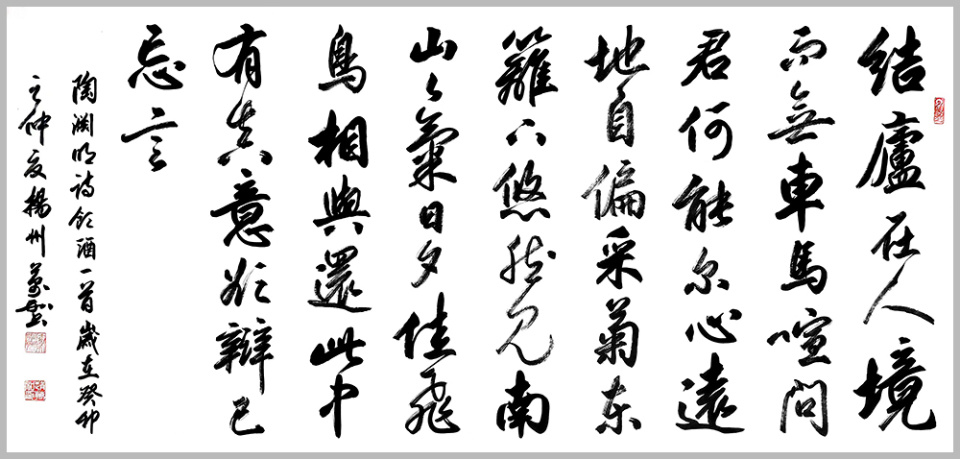 結廬在人境
而無車馬喧問
君何能尔心遠
地自偏采菊东
籬下悠然見南
山々氣日夕佳飛
鳥相與還此中
有真意欲辯已
忘言
陶渊明詩飲酒一首歲在癸卯
之仲夏揚州